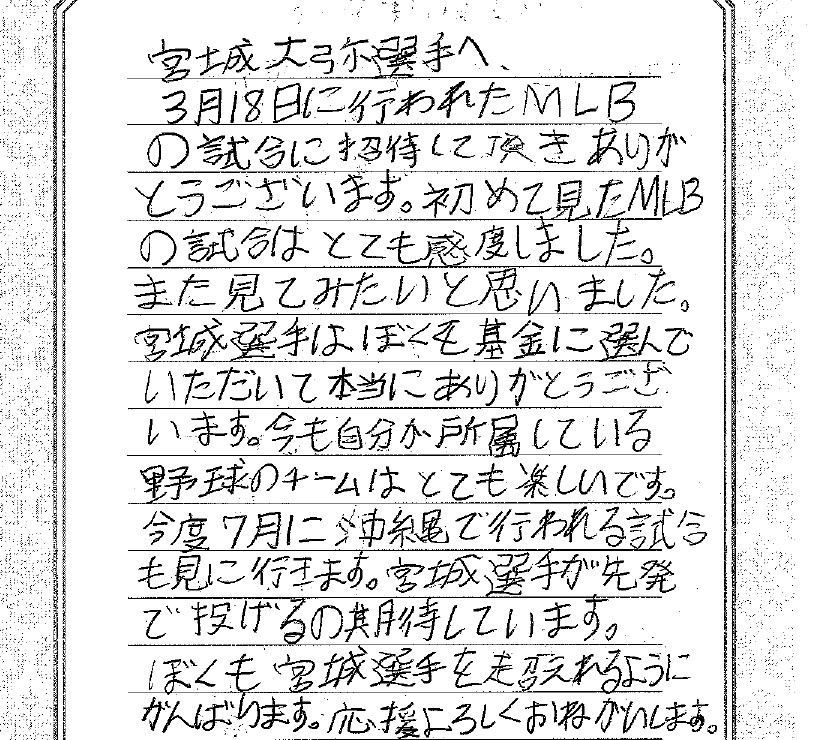 宮城大弥選手へ、
3月18日に行われたMLB
の試合に招待して頂きありが
とうございます。初めて見たMLB
の試合はとても感度しました。
また見てみたいと思いました。
宮城選手はぼくを基金に選んで
いただいて本当にありがとうござ
います。今も自分が所属している
野球のチームはとても楽しいです。
今度7月に沖縄で行われる試合
も見に行きます。宮城選手が先発
で投げるの期待しています。
ぼくも宮城選手を走変えれるように
がんばります。応援よろしくおねがいします。